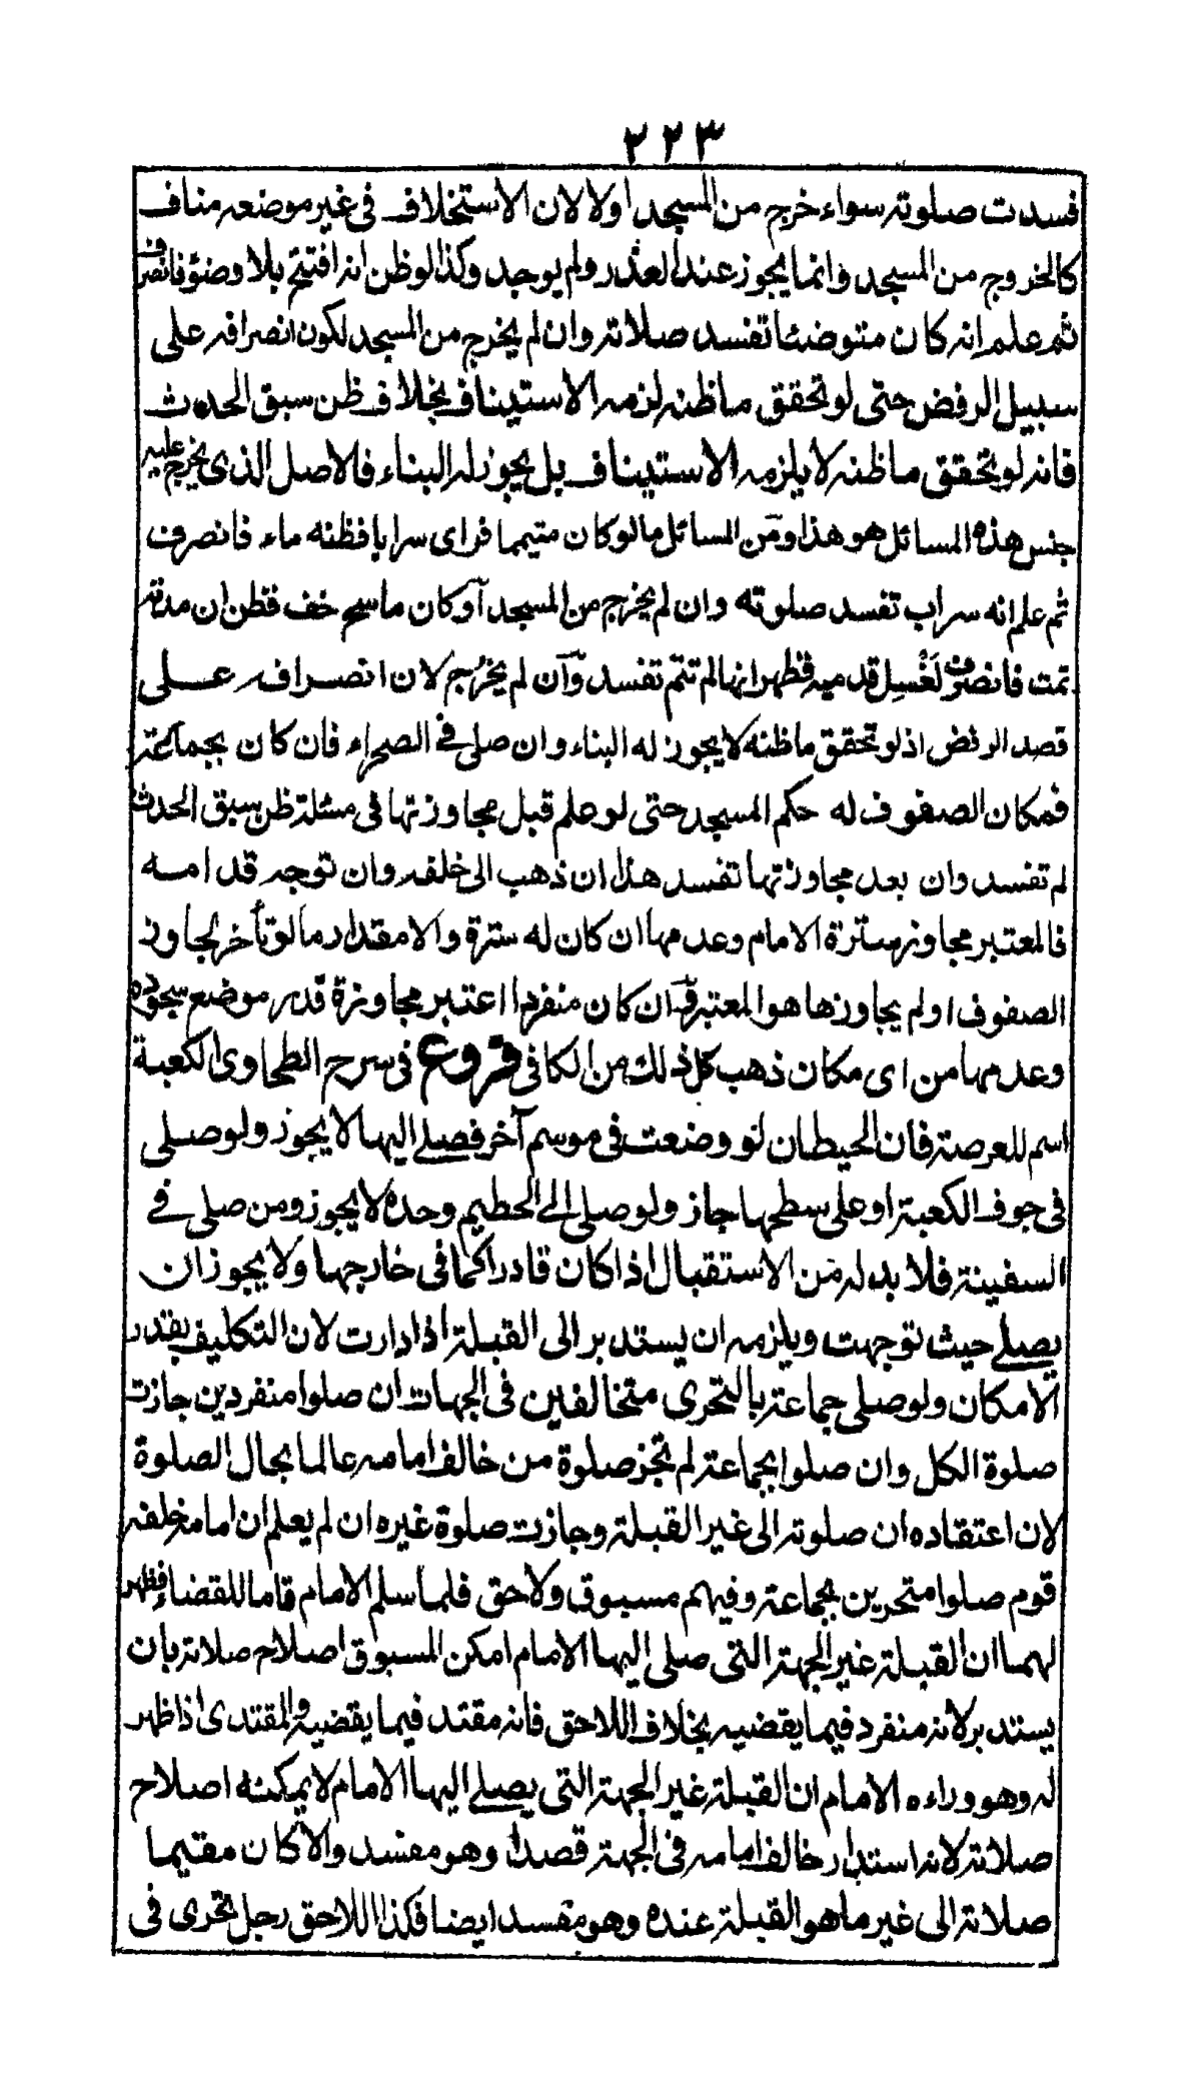 ٢٢٣
فسدت صلوته سواء خرج من المسجد اولا لان الاستخلاف فى غير موضعه مناف
كالخروج من المسجد وانما يجوز عند العذر ولم يوجد وكذا لوظن انه افتتح بلا وضؤ فانصرف
ثم علم انه كان متوضئا تفسد صلاته وان لم يخرج من المسجد لكون انصرافه على
سبيل الرفض حتى لو تحقق ما ظنه لزمه الاستيناف بخلاف ظن سبق الحدث
فانه لو تحقق ما ظنه لا يلزمه الاستيناف بل يجوز له البناء فالاصل الذى يخرج عليه
جنس هذه المسائل هو هذا ومن المسائل ما لو كان متيمما فراى سرابا فظنه ماء فانصرف
ثم علم انه سراب تفسد صلوته وان لم يخرج من المسجد او كان ماسح خف فظن ان مدته
تمت فانصرف لغسل قدميه فظهر انها لم تتم تفسد وان لم يخرج لان انصرافه على
قصد الرفض اذ لو تحقق ما ظنه لا يجوز له البناء وان صلى فى الصحراء فان كان بجماعة
فمكان الصفوف له حكم المسجد حتى لو علم قبل مجاوزتها فى مسئلة ظن سبق الحدث
لم تفسد وان بعد مجاوزتها تفسد هذا ان ذهب الى خلفه وان توجه قدامه
فالمعتبر مجاوزة سترة الامام وعدمها ان كان له سترة والا مقدار ما لو تأخر لجاوز
الصفوف او لم يجاوزها هو المعتبر وان كان منفردا اعتبر مجاوزة قدر موضع سجوده
وعدمها من اى مكان ذهب كل ذلك من الكافى فروع فى سرح الطحاوى الكعبة
اسم للعرصة فان الحيطان لو وضعت فى موسم آخر فصلى اليها لا يجوز ولو صلى
فى جوف الكعبة او على سطحها جاز ولو صلى الى الحطيم وحده لا يجوز ومن صلى فى
السفينة فلا بد له من الاستقبال اذا كان قادرا كما فى خارجها ولا يجوز ان
يصلى حيث توجهت ويلزمه ان يستدبر الى القبلة اذا دارت لان التكليف بقدر
الامكان ولو صلى جماعة بالتحرى متخالفين فى الجهات ان صلوا منفردين جازت
صلوة الكل وان صلوا بجماعة لم تجز صلوة من خالف امامه عالما بحال الصلوة
لان اعتقاده ان صلوته الى غير القبلة وجازت صلوة غيره ان لم يعلم ان امامه خلفه
قوم صلوا متحرين بجماعة وفيهم مسبوق ولاحق فلما سلم الامام قاما للقضاء فظهر
لهما ان القبلة غير الجهة التى صلى اليها الامام امكن المسبوق اصلاح صلاته بان
يستدبر لانه منفرد فيما يقضيه بخلاف اللاحق فانه مقتد فيما يقضيه والمقتدى اذا ظهر
له وهو وراءه الامام ان القبلة غير الجهة التى يصلى اليها الامام لا يمكنه اصلاح
صلاته لانه استدار خالف امامه فى الجهة قصدا وهو مفسد والا كان مقيما
صلاته الى غير ما هو القبلة عنده وهو مفسد ايضا فكذا اللاحق رجل تحرى فى